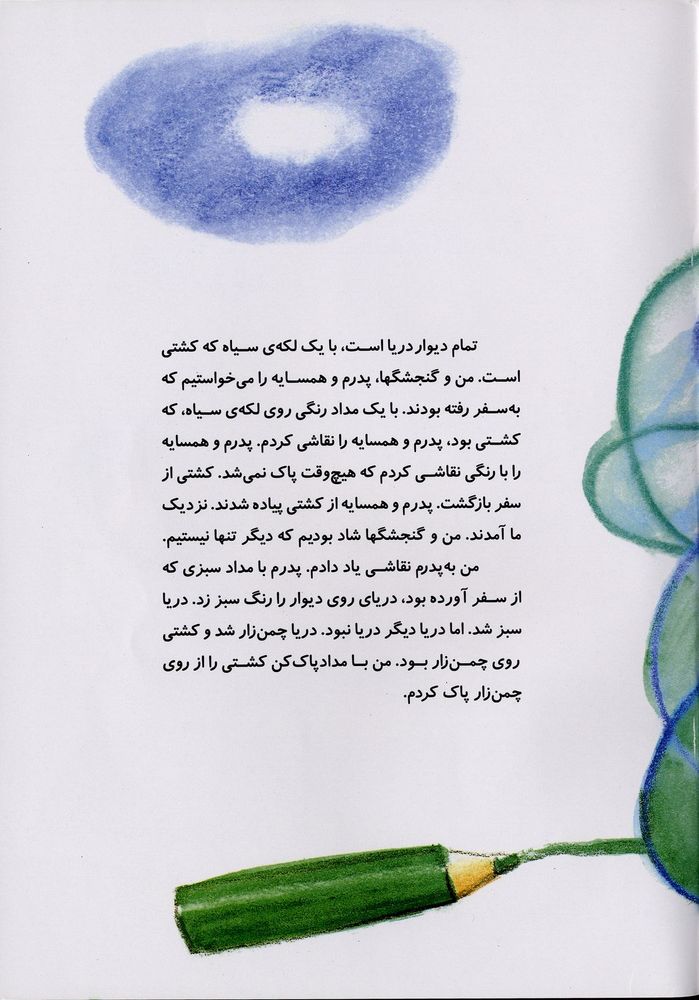 تمام دیوار دریا است، با یک لکه‌ی سیاه که کشتی
است. من و گنجشگها، پدرم و همسایه را می‌خواستیم که
به‌سفر رفته بودند. با یک مداد رنگی روی لکه‌ی سیاه، که
کشتی بود، پدرم و همسایه را نقاشی کردم. پدرم و همسایه
را با رنگی نقاشی کردم که هیچ‌وقت پاک نمی‌شد. کشتی از
سفر بازگشت. پدرم و همسایه از کشتی پیاده شدند. نزدیک
ما آمدند. من و گنجشگها شاد بودیم که دیگر تنها نیستیم.
من به‌پدرم نقاشی یاد دادم. پدرم با مداد سبزی که
از سفر آورده بود، دریای روی دیوار را رنگ سبز زد. دریا
سبز شد. اما دریا دیگر دریا نبود. دریا چمن‌زار شد و کشتی
روی چمن‌زار بود. من با مدادپاک‌کن کشتی را از روی
چمن‌زار پاک کردم.